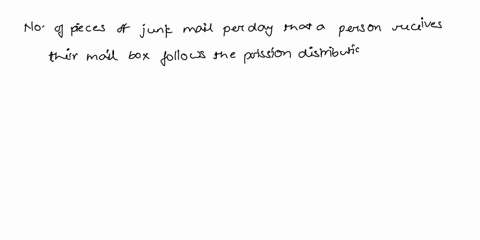 No. of pieces of junk mail per day that a person receives
their mail box follows the poission distributic